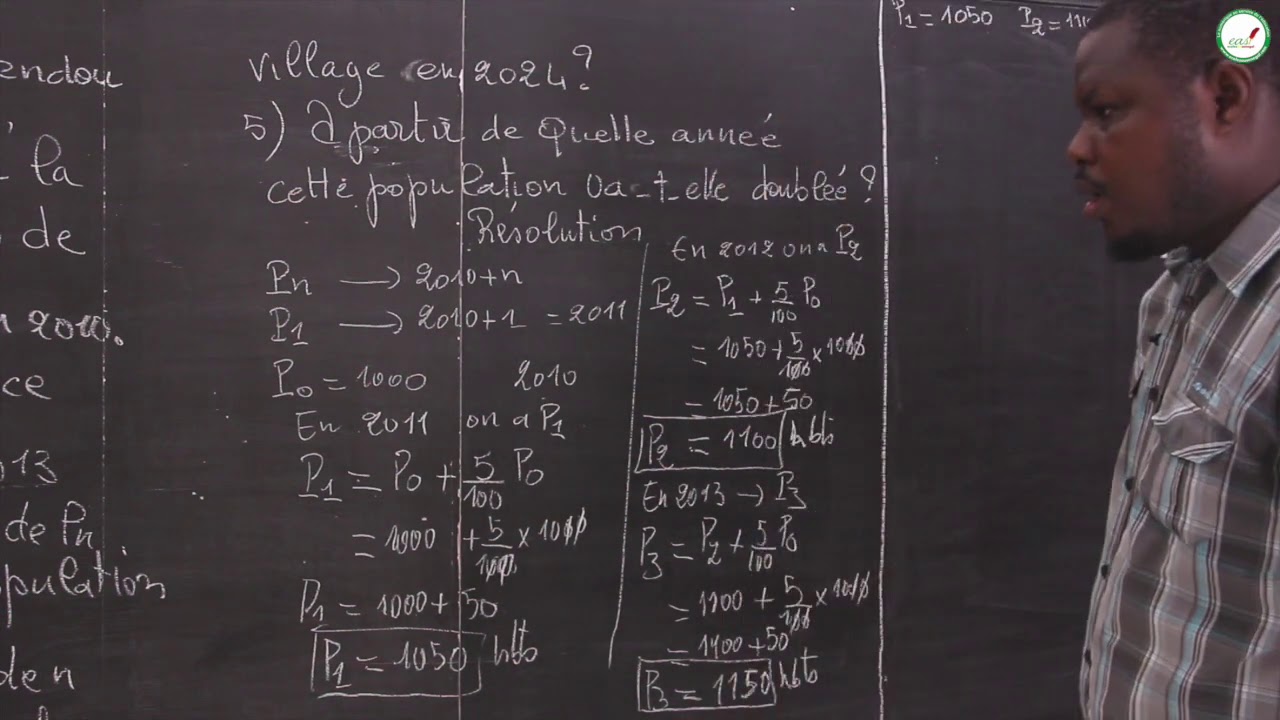 endou
la
de
2010.
ce
13
de Pn
pulation
de n
village en 2024?
5) à partir de Quelle année
cette population va-t-elle doublée?
Résolution
Pn → 2010+n
P1 → 2010+1 = 2011
P0 = 1000 2010
En 2011 on a P1
P1 = P0 + 5/100 P0
= 1000 + 5/100 × 1000
P1 = 1000 + 50
P1 = 1050 hbts
En 2012 on a P2
P2 = P1 + 5/100 P0
= 1050 + 5/100 × 1000
= 1050 + 50
P2 = 1100 hbts
En 2013 → P3
P3 = P2 + 5/100 P0
= 1100 + 5/100 × 1000
= 1100 + 50
P3 = 1150 hbts
P1 = 1050 P2 = 110
eas